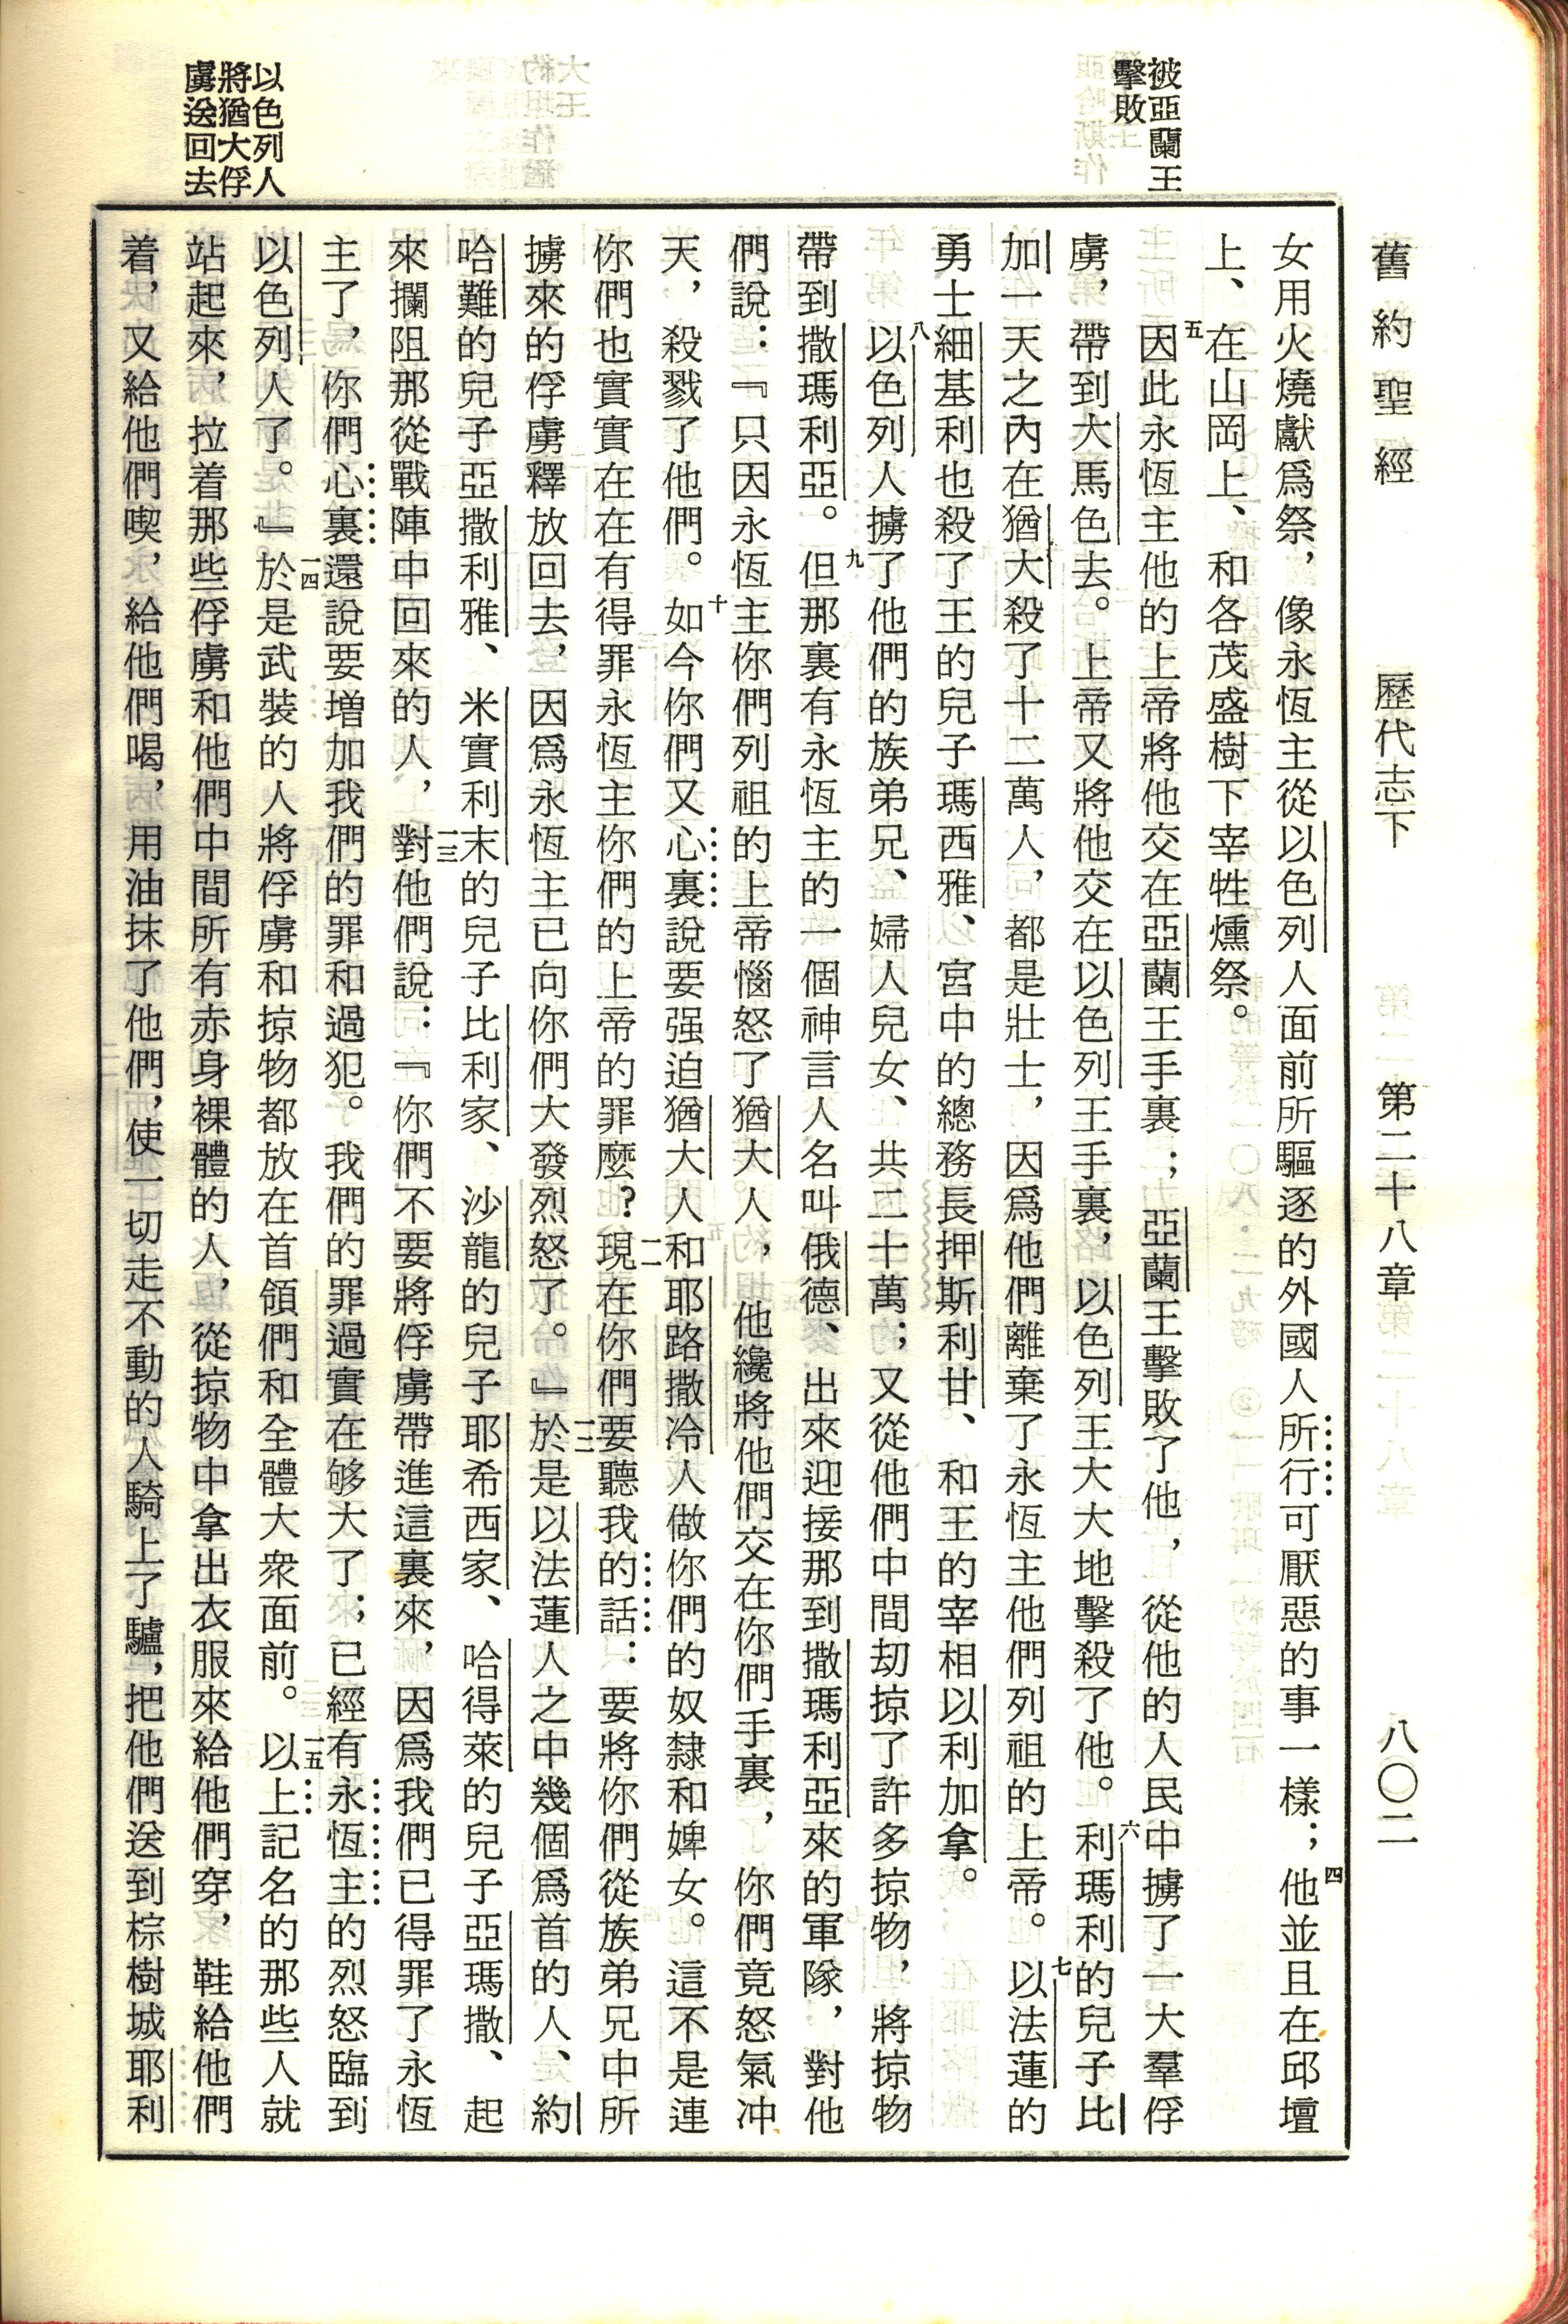 舊約聖經　歷代志下　第二十八章　八〇二
被亞蘭王
擊敗
以色列人
將猶大俘
虜送回去
女用火燒獻爲祭，像永恆主從以色列人面前所驅逐的外國人所行可厭惡的事一樣；四他並且在邱壇
上、在山岡上、和各茂盛樹下宰牲燻祭。
五因此永恆主他的上帝將他交在亞蘭王手裏；亞蘭王擊敗了他，從他的人民中擄了一大羣俘
虜，帶到大馬色去。上帝又將他交在以色列王手裏，以色列王大大地擊殺了他。六利瑪利的兒子比
加一天之內在猶大殺了十二萬人，都是壯士，因爲他們離棄了永恆主他們列祖的上帝。七以法蓮的
勇士細基利也殺了王的兒子瑪西雅、宮中的總務長押斯利甘、和王的宰相以利加拿。
八以色列人擄了他們的族弟兄、婦人兒女、共二十萬；又從他們中間刧掠了許多掠物，將掠物
帶到撒瑪利亞。九但那裏有永恆主的一個神言人名叫俄德、出來迎接那到撒瑪利亞來的軍隊，對他
們說：『只因永恆主你們列祖的上帝惱怒了猶大人，他纔將他們交在你們手裏，你們竟怒氣冲
天，殺戮了他們。十如今你們又心裏說要强迫猶大人和耶路撒冷人做你們的奴隸和婢女。這不是連
你們也實實在在有得罪永恆主你們的上帝的罪麼？一一現在你們要聽我的話：要將你們從族弟兄中所
擄來的俘虜釋放回去，因爲永恆主已向你們大發烈怒了。』一二於是以法蓮人之中幾個爲首的人、約
哈難的兒子亞撒利雅、米實利末的兒子比利家、沙龍的兒子耶希西家、哈得萊的兒子亞瑪撒、起
來攔阻那從戰陣中回來的人，一三對他們說：『你們不要將俘虜帶進這裏來，因爲我們已得罪了永恆
主了，你們心裏還說要增加我們的罪和過犯。我們的罪過實在够大了；已經有永恆主的烈怒臨到
以色列人了。』一四於是武裝的人將俘虜和掠物都放在首領們和全體大衆面前。一五以上記名的那些人就
站起來，拉着那些俘虜和他們中間所有赤身裸體的人，從掠物中拿出衣服來給他們穿，鞋給他們
着，又給他們喫，給他們喝，用油抹了他們，使一切走不動的人騎上了驢，把他們送到棕樹城耶利